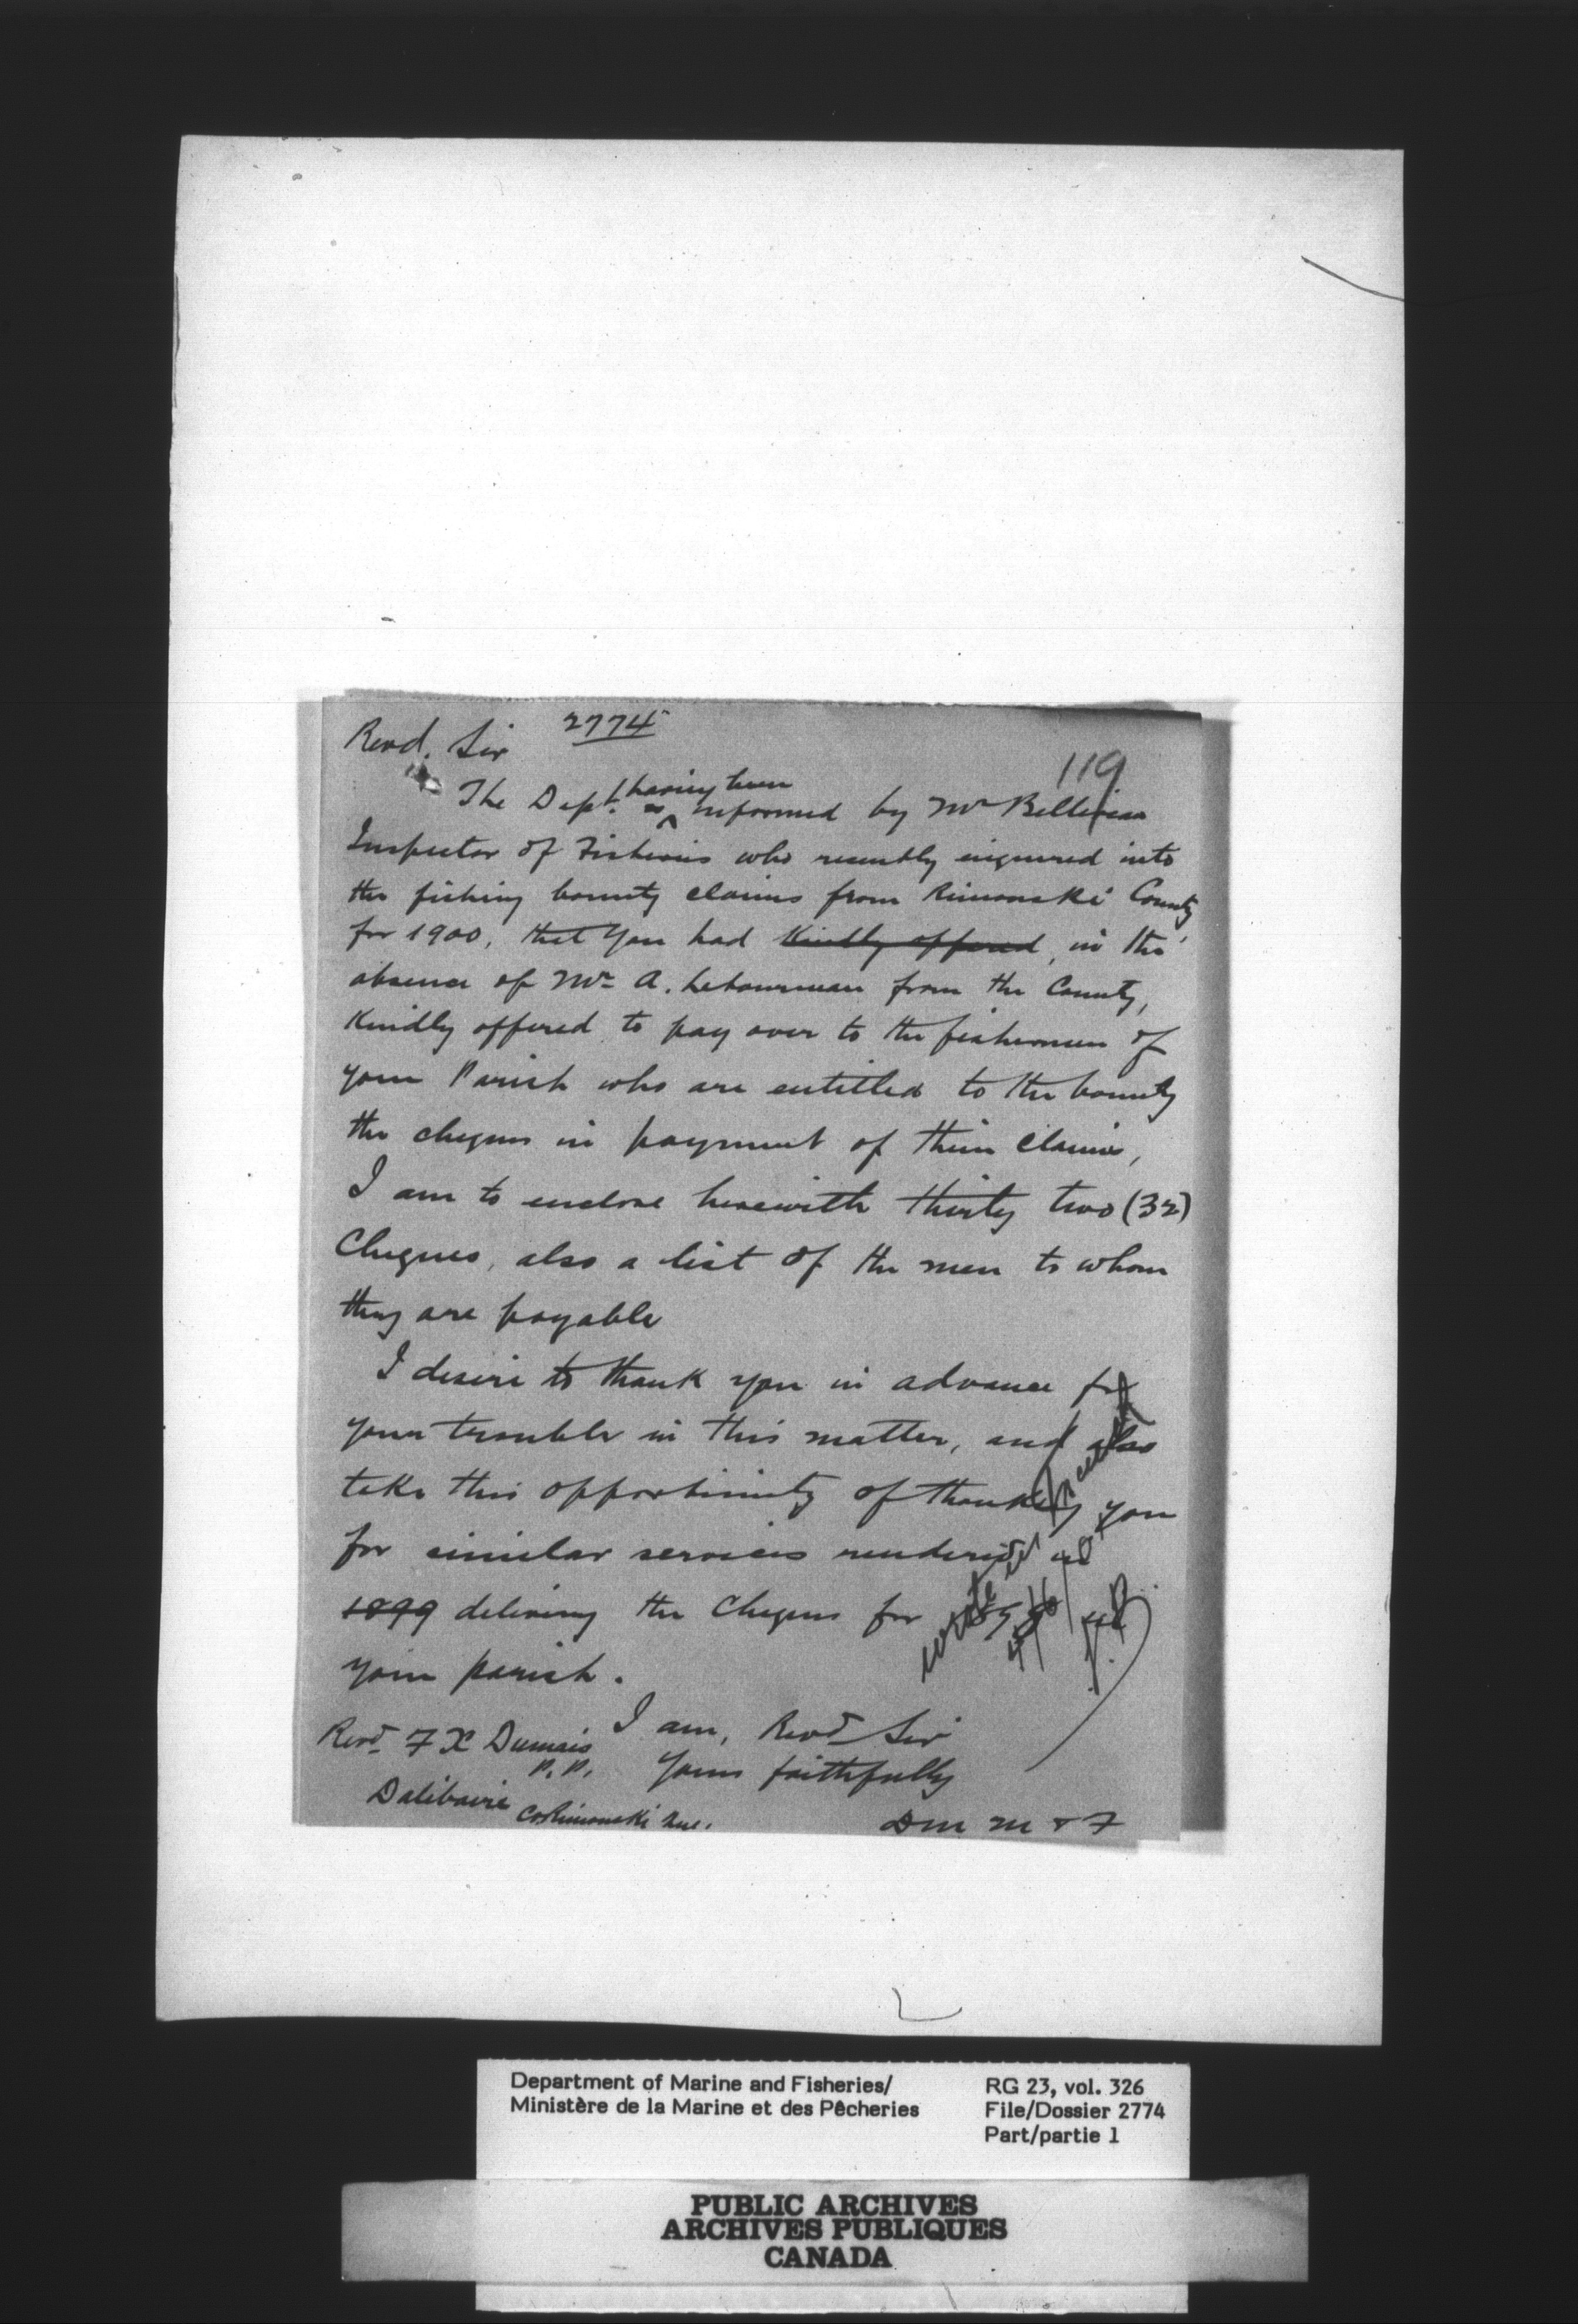 2774
Revd. Sir
119
having been
The Dept. is ^ informed by Mr Belliveau
Inspector of Fisheries who recently enquired into
the fishing bounty claims from Rimouski County
for 1900, that you had kindly offered, in the
absence of Mr A. from the County,
Kindly offered to pay over to the fishermen of
your Parish who are entitled to the bounty
the cheques in payment of their claims,
I am to enclose herewith thirty two (32)
Cheques, also a list of the men to whom
they are payable
I desire to thank you in advance for
your trouble in this matter, and also
take this opportunity of thanking you
for similar services rendered in
1899 delivery the Cheques for
your parish.
wrote in French
J.B.
I am, Revd Sir
Yours faithfully
DM M & F
Revd F X Dumais
P.P.
Dalibaire
Co Rimouski Que.
Department of Marine and Fisheries/
Ministère de la Marine et des Pêcheries
RG 23, vol. 326
File/Dossier 2774
Part/partie 1
PUBLIC ARCHIVES
ARCHIVES PUBLIQUES
CANADA